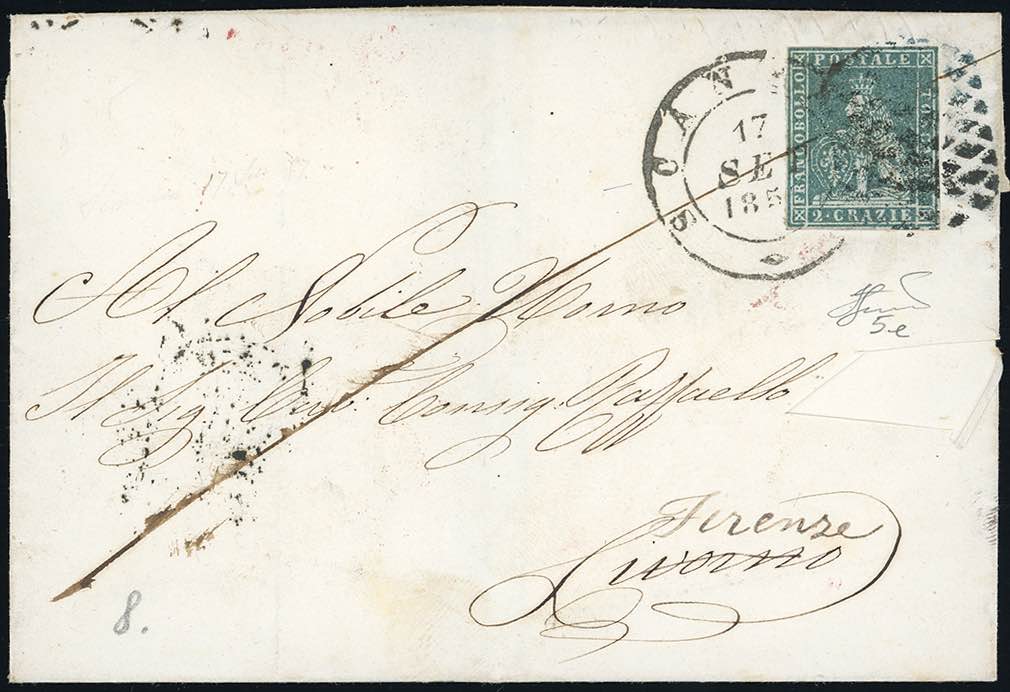 SCAN
17
SE
185
FRANCOBOLLO
POSTALE
2·CRAZIE
Al Nobile Uomo
Il Sig. Cav. Consig. Raffaello
Firenze
Livorno
5e
8.